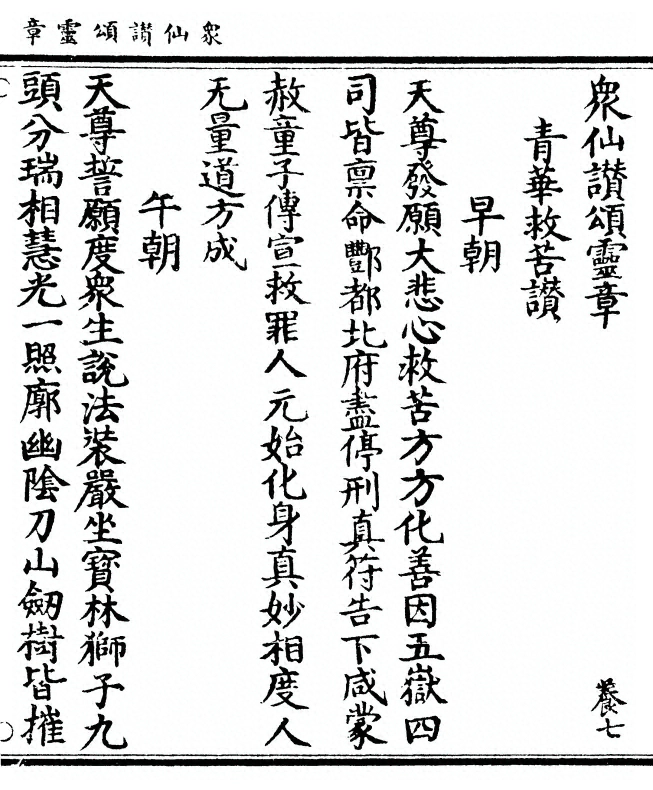 眾仙讃頌靈章
眾仙讃頌靈章
養七
青華救苦讃
早朝
天尊發願大悲心救苦方方化善因五嶽四
司皆禀命酆都北府盡停刑真符告下咸蒙
赦童子傳宣救罪人元始化身真妙相度人
无量道方成
午朝
天尊誓願度眾生說法裝嚴坐寳林獅子九
頭分瑞相慧光一照廓幽陰刀山劒樹皆摧